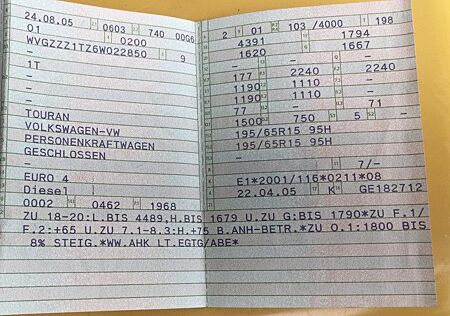 24.08.05 2.1 0603 2.2 740 00G6
01 0200
WVGZZZ1TZ6W022850 9
-
1T
-
-
-
TOURAN
VOLKSWAGEN-VW
PERSONENKRAFTWAGEN
GESCHLOSSEN
-
EURO 4
Diesel
0002 0462 1968
2 01 103 /4000 198
4391 1794
1620 1667
- - -
177 2240 2240
1190 1110 -
1190 1110 -
77 - 71
1500 750 5 -
195/65R15 95H
195/65R15 95H
-
7/-
E1*2001/116*0211*08
22.04.05 K GE182712
ZU 18-20:L.BIS 4489,H.BIS 1679 U.ZU G:BIS 1790*ZU F.1/
F.2:+65 U.ZU 7.1-8.3:H.+75 B.ANH-BETR.*ZU O.1:1800 BIS
8% STEIG.*WW.AHK LT.EGTG/ABE*